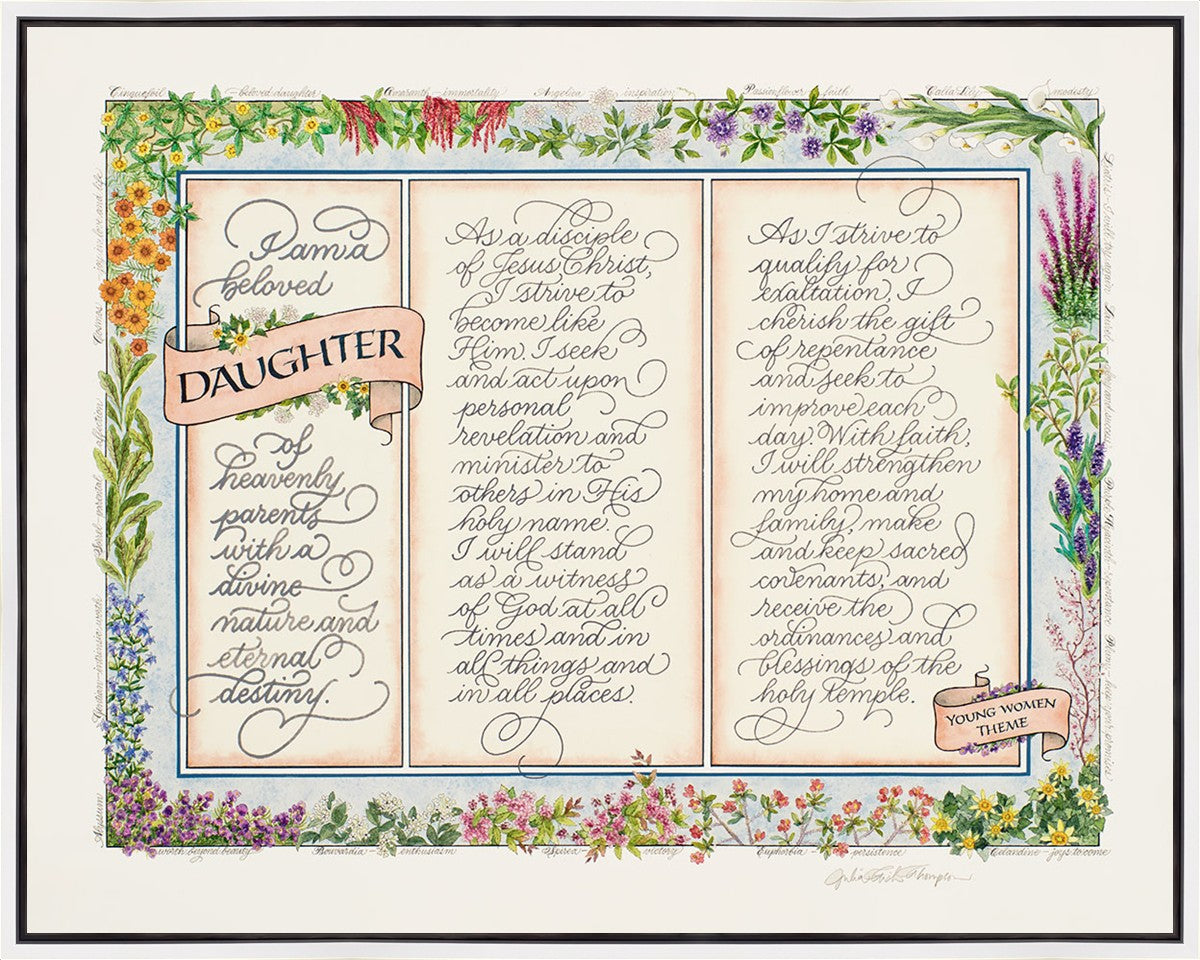 Cinquefoil – beloved daughter   Amaranth – immortality   Angelica – inspiration   Passionflower – faith   Calla Lily – modesty
I am a
beloved
DAUGHTER
of
heavenly
parents
with a
divine
nature and
eternal
destiny.
As a disciple
of Jesus Christ,
I strive to
become like
Him. I seek
and act upon
personal
revelation and
minister to
others in His
holy name.
I will stand
as a witness
of God at all
times and in
all things and
in all places.
As I strive to
qualify for
exaltation, I
cherish the gift
of repentance
and seek to
improve each
day. With faith,
I will strengthen
my home and
family, make
and keep sacred
covenants, and
receive the
ordinances and
blessings of the
holy temple.
YOUNG WOMEN
THEME
Alyssum – worth beyond beauty   Bouvardia – enthusiasm   Spirea – victory   Euphorbia – persistence   Celandine – joys to come
Thompson